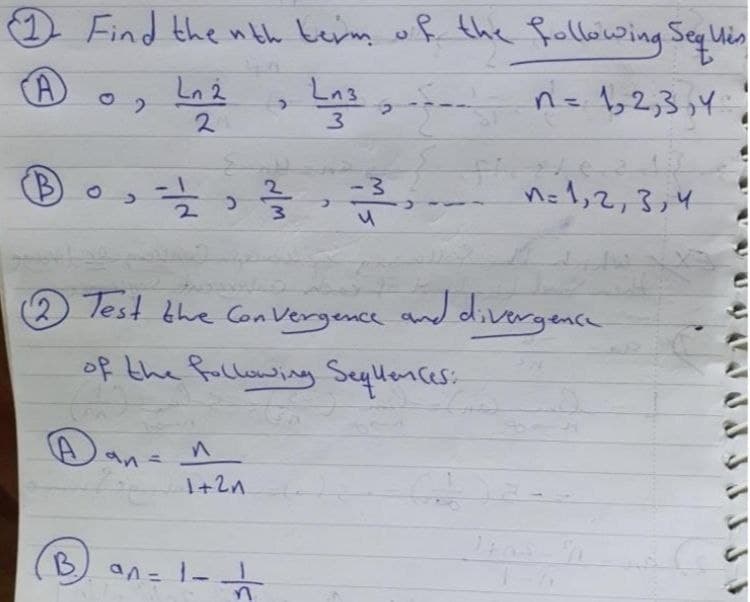 ① Find the nth term of the following Sequen
Ⓐ 0, Ln2/2, Ln3/3, ---- n = 1,2,3,4
Ⓑ 0, -1/2, 2/3, -3/4, ---- n=1,2,3,4
② Test the Convergence and divergence
of the following Sequences:
Ⓐ an = n/1+2n
Ⓑ an = 1 - 1/n